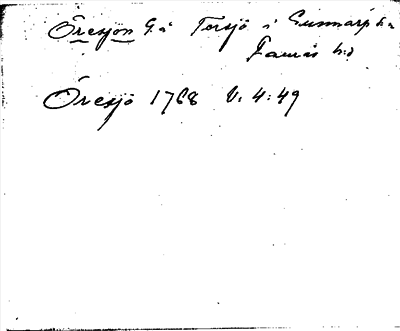 Öresjön G. å Torsjö i Gunnarp sn
Faurås hd
Öresjö 1768 V. 4:49